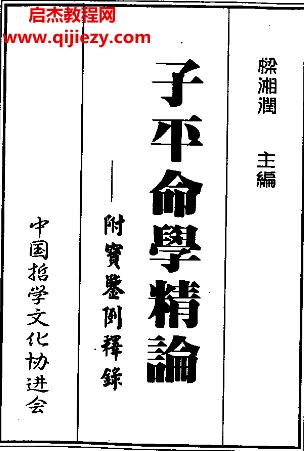 启杰教程网
www.qijiezy.com
梁湘潤 主編
子平命學精論
——附實鑒例釋錄
中国哲学文化协进会